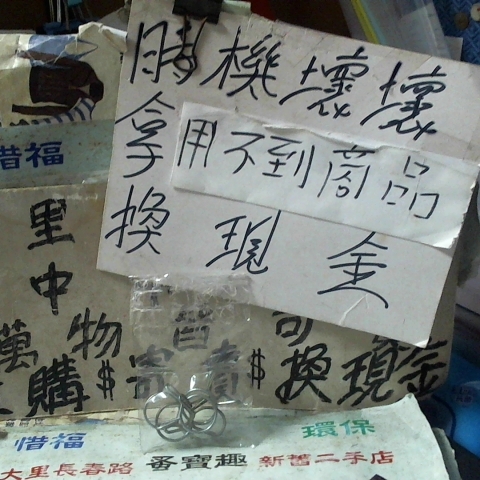 時機壞壞
拿用不到商品
換現金
惜福
里
中
萬物皆可
購$寄賣$換現金
惜福 環保
大里長春路 番寶趣 新舊二手店